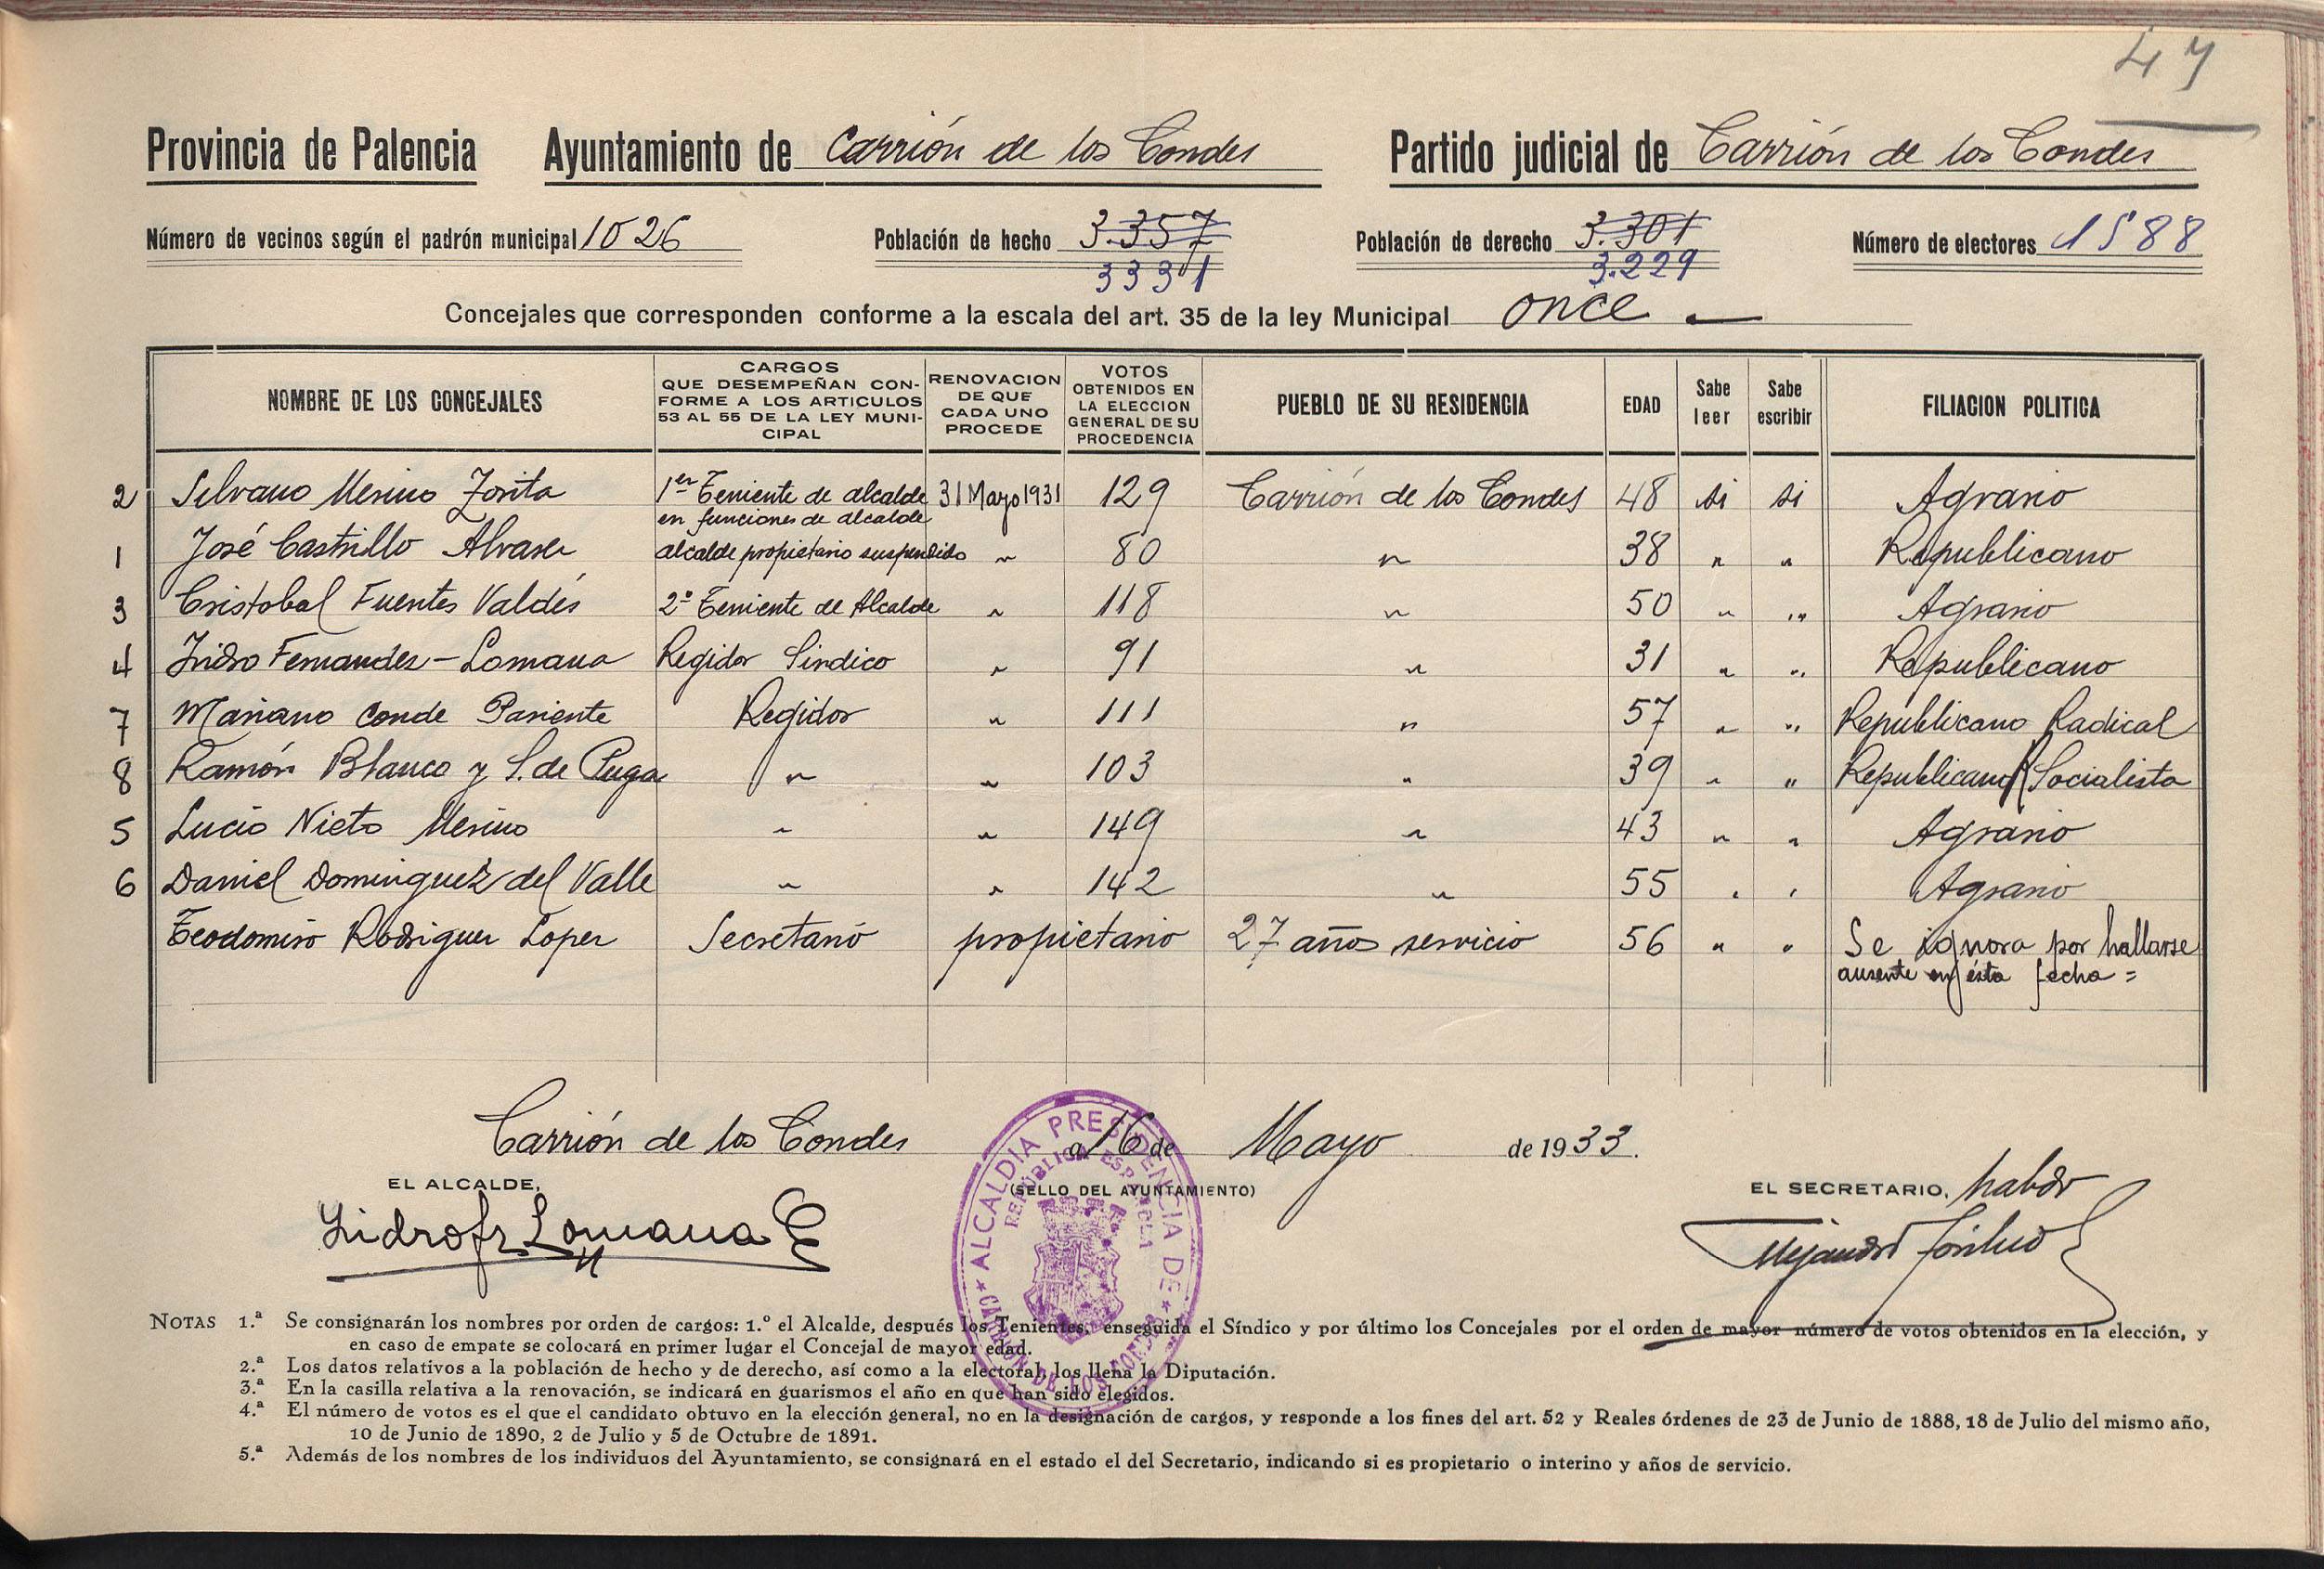 47
Provincia de Palencia Ayuntamiento de Carrión de los Condes Partido judicial de Carrión de los Condes
Número de vecinos según el padrón municipal 1026 Población de hecho 3.357 Población de derecho 3.301 Número de electores 1588
3331 3.229
Concejales que corresponden conforme a la escala del art. 35 de la ley Municipal once
NOMBRE DE LOS CONCEJALES CARGOS QUE DESEMPEÑAN CONFORME A LOS ARTICULOS 53 AL 55 DE LA LEY MUNICIPAL RENOVACION DE QUE CADA UNO PROCEDE VOTOS OBTENIDOS EN LA ELECCION GENERAL DE SU PROCEDENCIA PUEBLO DE SU RESIDENCIA EDAD Sabe leer Sabe escribir FILIACION POLITICA
2 Silvano Merino Zorita 1er Teniente de alcalde en funciones de alcalde 31 Mayo 1931 129 Carrión de los Condes 48 si si Agrario
1 José Castrillo Alvarez alcalde propietario suspendido " 80 " 38 " " Republicano
3 Cristobal Fuentes Valdés 2º Teniente de Alcalde " 118 " 50 " " Agrario
4 Isidro Fernandez-Lomana Regidor Sindico " 91 " 31 " " Republicano
7 Mariano Conde Pariente Regidor " 111 " 57 " " Republicano Radical
8 Ramón Blanco y S. de Puga " " 103 " 39 " " Republicano Socialista
5 Lucio Nieto Merino " " 149 " 43 " " Agrario
6 Daniel Dominguez del Valle " " 142 " 55 " " Agrario
Teodomiro Rodriguez Lopez Secretario propietario 27 años servicio 56 " " Se ignora por hallarse
ausente en ésta fecha =
Carrión de los Condes a 16 de Mayo de 1933.
EL ALCALDE, (SELLO DEL AYUNTAMIENTO) EL SECRETARIO, habdr
Isidro fz Lomana
ALCALDIA PRESIDENCIA DE
CARRION DE LOS CONDES
REPÚBLICA ESPAÑOLA
NOTAS 1.ª Se consignarán los nombres por orden de cargos: 1.º el Alcalde, después los Tenientes, enseguida el Síndico y por último los Concejales por el orden de mayor número de votos obtenidos en la elección, y
en caso de empate se colocará en primer lugar el Concejal de mayor edad.
2.ª Los datos relativos a la población de hecho y de derecho, así como a la electoral, los llena la Diputación.
3.ª En la casilla relativa a la renovación, se indicará en guarismos el año en que han sido elegidos.
4.ª El número de votos es el que el candidato obtuvo en la elección general, no en la designación de cargos, y responde a los fines del art. 52 y Reales órdenes de 23 de Junio de 1888, 18 de Julio del mismo año,
10 de Junio de 1890, 2 de Julio y 5 de Octubre de 1891.
5.ª Además de los nombres de los individuos del Ayuntamiento, se consignará en el estado el del Secretario, indicando si es propietario o interino y años de servicio.